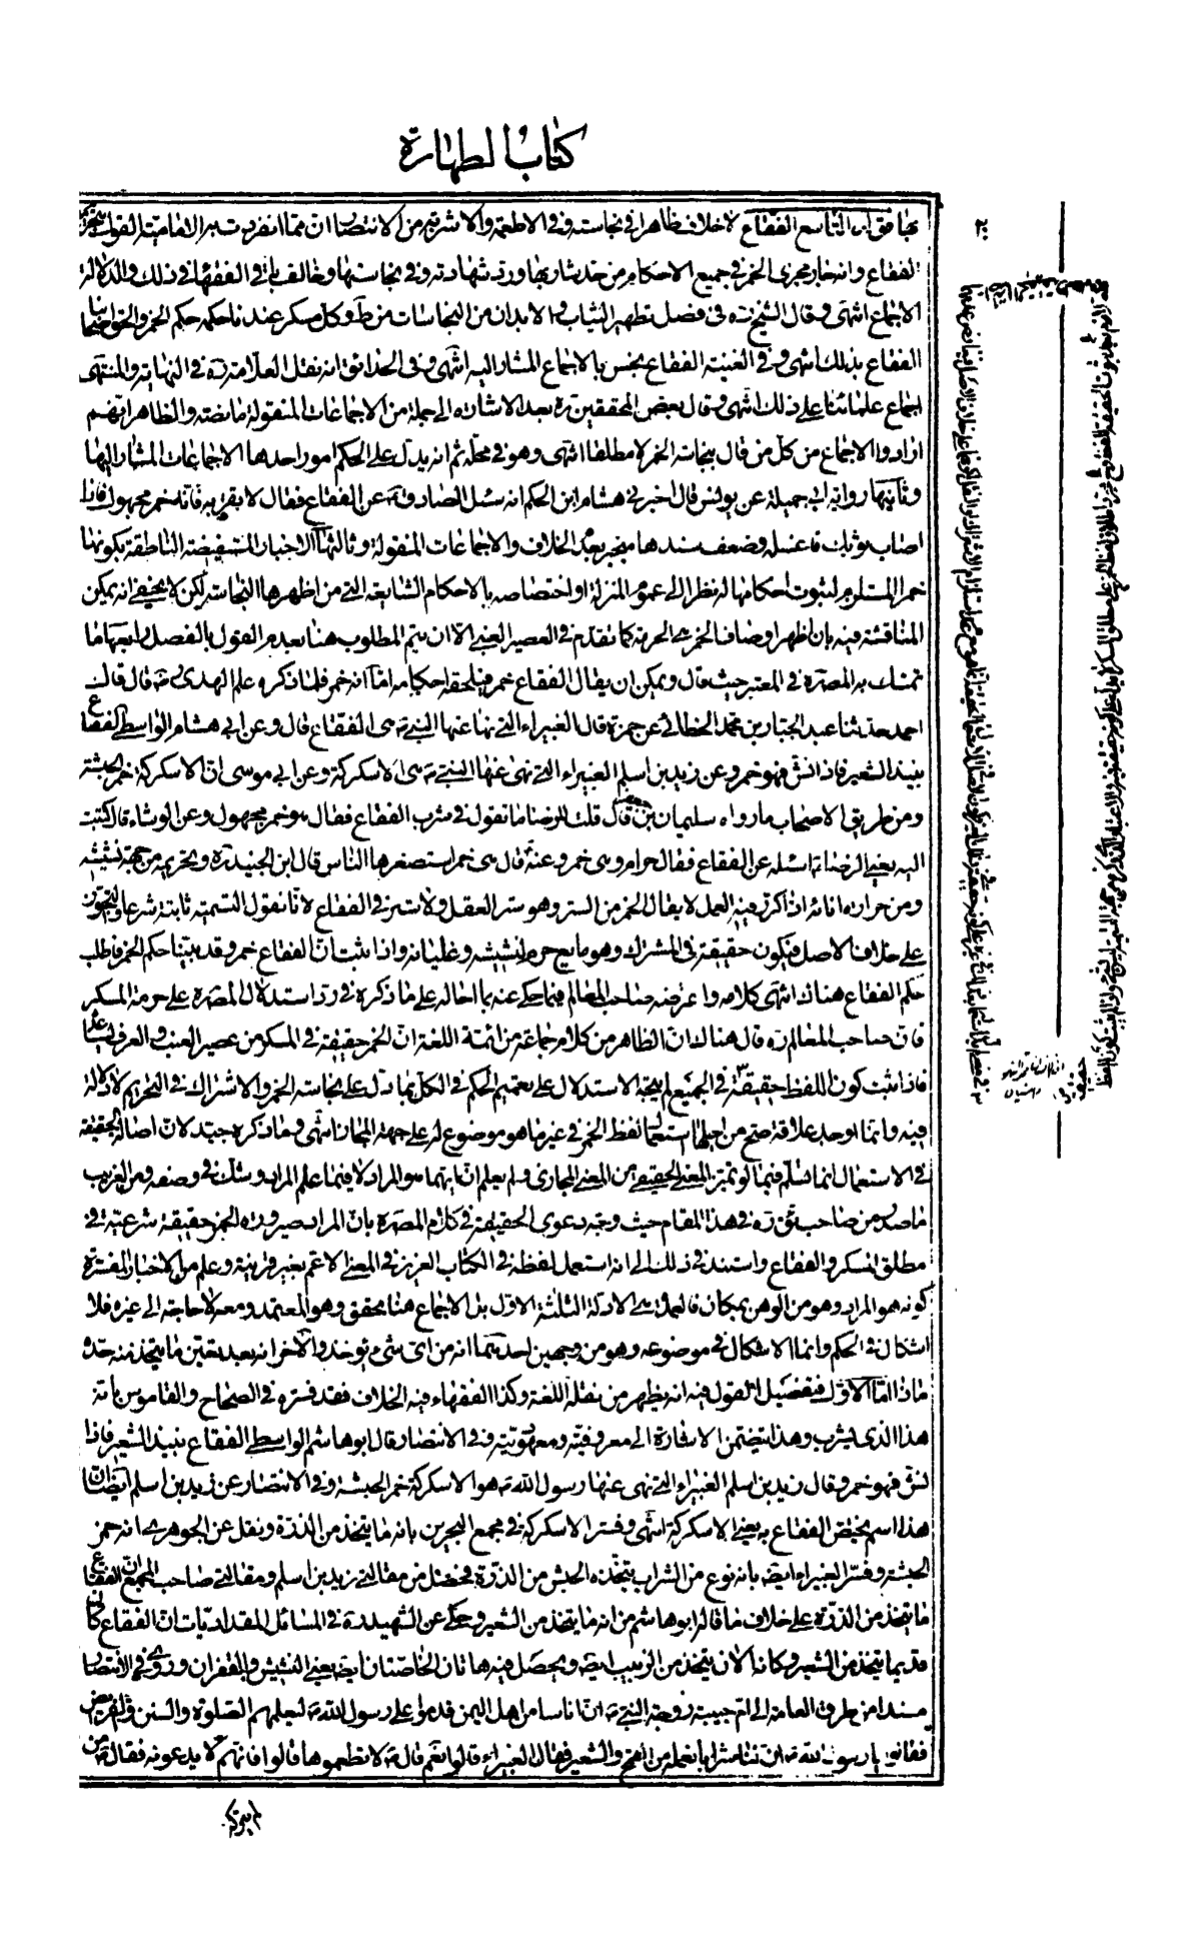 كتاب الطهارة
التاسع الفقاع لا خلاف ظاهرا في نجاسته وفي الاطعمة والاشربة من الانتصار ان مما انفردت به الامامية القول بتحريم
الفقاع وانه جار مجرى الخمر في جميع الاحكام من حد شاربها ورد شهادته وفي نجاستها وخالف باقي الفقهاء في ذلك والدلالة
الاجماع انتهى وقال الشيخ ره في فصل تطهير الثياب والابدان من النجاسات من ط وكل مسكر عندنا حكمه حكم الخمر والحق اصحابنا
الفقاع بذلك انتهى وفي الغنية الفقاع نجس بالاجماع المشار اليه انتهى وفي الحدائق انه نقل العلامة ره في النهاية والمنتهى
اجماع علمائنا على ذلك انتهى وقال بعض المحققين ره بعد الاشارة الى جملة من الاجماعات المنقولة ما نصه والظاهر انهم
ارادوا الاجماع من كل من قال بنجاسة الخمر لا مطلقا انتهى وهو في محله ثم انه يدل على الحكم امور احدها الاجماعات المشار اليها
وثانيها رواية ابي جميلة عن يونس قال اخبرني هشام ابن الحكم انه سئل الصادق ع عن الفقاع فقال لا تقربه فانه خمر مجهول فاذا
اصاب ثوبك فاغسله وضعف سندها منجبر بعدم الخلاف والاجماعات المنقولة وثالثها الاخبار المستفيضة الناطقة بكونها
خمر المستلزم لثبوت احكامها له نظرا الى عموم المنزلة او اختصاصه بالاحكام الشايعة التي من اظهرها النجاسة لكن لا يخفى انه يمكن
المناقشة فيه بان اظهر اوصاف الخمر هي الحرمة كما تقدم في العصير العنبي الا ان يتم المطلوب هنا بعدم القول بالفصل رابعها ما
تمسك به المصنف ره في المعتبر حيث قال ويمكن ان يقال الفقاع خمر فيلحقه احكامه اما انه خمر فلما ذكره علم الهدى ره قال قال
احمد حدثنا عبد الجبار بن محمد الخطابي عن حمزة قال الغبيراء التي نهى عنها النبي ص هي الفقاع قال وعن ابي هشام الواسطي الفقاع
نبيذ الشعير فاذا نش فهو خمر وعن زيد بن اسلم الغبيراء التي نهى عنها النبي ص هي الاسكركة وعن ابي موسى ان الاسكركة خمر الحبشة
ومن طريق الاصحاب ما رواه سليمان بن جعفر قال قلت للرضا ما تقول في شرب الفقاع فقال هو خمر مجهول وعن الوشاء قال كتبت
اليه يعني الرضا ع اسئله عن الفقاع فقال حرام وهي خمر وعنه قال هي خمر استصغرها الناس قال ابن الجنيد ره وتحريمه من جهة نشيشه
ومن ضراوة انائه اذا كرر فيه العمل لا يقال الخمر من الستر وهو ستر العقل ولا ستر في الفقاع لانا نقول التسمية ثابتة شرعا والتجوز
على خلاف الاصل فيكون حقيقة في المشترك وهو مايع حرم لنشيشه وغليانه واذا ثبت ان الفقاع خمر وقد بينا حكم الخمر فاطلب
حكم الفقاع هناك انتهى كلامه واعترضه صاحب المعالم فيما حكي عنه بما احاله على ما ذكره في رد استدلال المصنف ره على حرمة المسكر
فان صاحب المعالم ره قال هناك ان الظاهر من كلام جماعة من ائمة اللغة ان الخمر حقيقة في المسكر من عصير العنب وفي العرف يساعده
فاذا ثبت كون اللفظ حقيقة في الجميع لم يتجه الاستدلال على تعميم الحكم في الكل بما دل على نجاسة الخمر والاشتراك في التحريم لا دلالة
فيه وانما اوجد علاقة صح من اجلها استعمال لفظ الخمر في غير ما هو موضوع له على جهة المجاز انتهى وما ذكره جيد لان اصالة الحقيقة
في الاستعمال انما تسلم فيما لو تميز المعنى الحقيقي من المعنى المجازي ولم يعلم ان ايهما هو المراد لا فيما علم المراد وشك في وصفه ومن الغريب
ما صدر من صاحب ئق ره في هذا المقام حيث وجه دعوى الحقيقة في كلام المصنف ره بان المراد صيرورة الخمر حقيقة شرعية في
مطلق المسكر والفقاع واستند في ذلك الى انه استعمل لفظه في الكتاب العزيز في المعنى الاعم بغير قرينة وعلم من الاخبار المفسرة
كونه هو المراد وهو من الوهن بمكان فالعمدة هي الادلة الثلثة الاول بل الاجماع هنا محقق وهو المعتمد ومعه لا حاجة الى غيره فلا
اشكال في الحكم وانما الاشكال في موضوعه وهو من وجهين احدهما انه من اي شيء يؤخذ والاخر انه بعد تعين ما يتخذ منه حده
ماذا اما الاول فتفصيل القول فيه انه يظهر من نقلة اللغة وكذا الفقهاء فيه الخلاف فقد فسره في الصحاح والقاموس بانه
هذا الذي يشرب وهذا يتضمن الاشارة الى معروفيته ومعهوديته وفي الانتصار قال ابو هاشم الواسطي الفقاع نبيذ الشعير فاذا
نش فهو خمر وقال زيد بن اسلم الغبيراء التي نهى عنها رسول الله ص هو الاسكركة خمر الحبشة وفي الانتصار عن زيد بن اسلم ايضا ان
هذا اسم يختص الفقاع به يعني الاسكركة انتهى وفسر الاسكركة في مجمع البحرين بانه ما يتخذ من الذرة ونقل عن الجوهري انه خمر
الحبشة وفسر الغبيراء ايضا بانه نوع من الشراب يتخذه الحبش من الذرة فحصل من مقالتي زيد بن اسلم ومقالتي صاحب المجمع ان الفقاع
ما يتخذ من الذرة على خلاف ما قاله ابو هاشم من انه ما يتخذ من الشعير وحكي عن الشهيد ره في المسائل المقداديات ان الفقاع كان
قديما يتخذ من الشعير وكانه الان يتخذ من الزبيب ايضا ويحصل فيه هاتان الخاصتان ايضا يعني النشيش والقفزان وروي في الانتصار
مسندا من طرق العامة الى ام حبيبة زوجة النبي ص ان اناسا من اهل اليمن قدموا على رسول الله ص ليعلمهم الصلوة والسنن والفرايض
فقالوا يا رسول الله ص ان لنا شرابا نعمله من القمح والشعير فقال الغبيراء قالوا نعم قال ص لا تطعموها قالوا فانهم لا يدعونه فقال ص من
لم يتركه